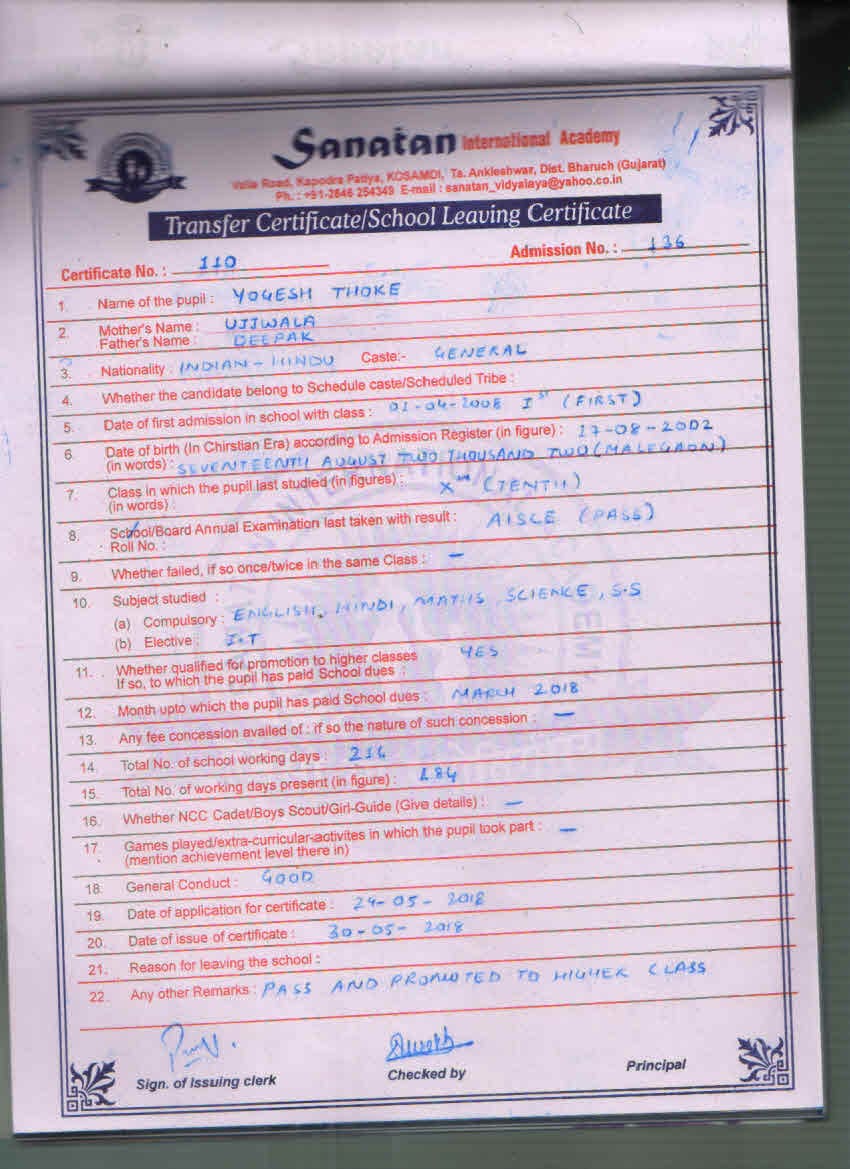 Sanatan International Academy
Valia Road, Kapodra Patiya, KOSAMDI, Ta. Ankleshwar, Dist. Bharuch (Gujarat)
Ph. : +91-2646 254349 E-mail : sanatan_vidyalaya@yahoo.co.in
Transfer Certificate/School Leaving Certificate
Certificate No. : 110 Admission No. : 136
1. Name of the pupil : YOGESH THOKE
2. Mother's Name : UJJWALA
Father's Name : DEEPAK
3. Nationality : INDIAN - HINDU Caste:- GENERAL
4. Whether the candidate belong to Schedule caste/Scheduled Tribe :
5. Date of first admission in school with class : 01-04-2008 Ist (FIRST)
6. Date of birth (In Chirstian Era) according to Admission Register (in figure) : 17-08-2002
(in words) : SEVENTEENTH AUGUST TWO THOUSAND TWO (MALEGAON)
7. Class in which the pupil last studied (in figures) : X (TENTH)
(in words) :
8. School/Board Annual Examination last taken with result : AISCE (PASS)
Roll No. :
9. Whether failed, if so once/twice in the same Class : –
10. Subject studied :
(a) Compulsory : ENGLISH, HINDI, MATHS, SCIENCE, S.S
(b) Elective : I.T
11. Whether qualified for promotion to higher classes YES
If so, to which the pupil has paid School dues :
12. Month upto which the pupil has paid School dues : MARCH 2018
13. Any fee concession availed of : if so the nature of such concession : –
14. Total No. of school working days : 214
15. Total No. of working days present (in figure) : 184
16. Whether NCC Cadet/Boys Scout/Girl-Guide (Give details) : –
17. Games played/extra-curricular-activites in which the pupil took part : –
(mention achievement level there in)
18. General Conduct : GOOD
19. Date of application for certificate : 24-05-2018
20. Date of issue of certificate : 30-05-2018
21. Reason for leaving the school :
22. Any other Remarks : PASS AND PROMOTED TO HIGHER CLASS
Sign. of Issuing clerk Checked by Principal